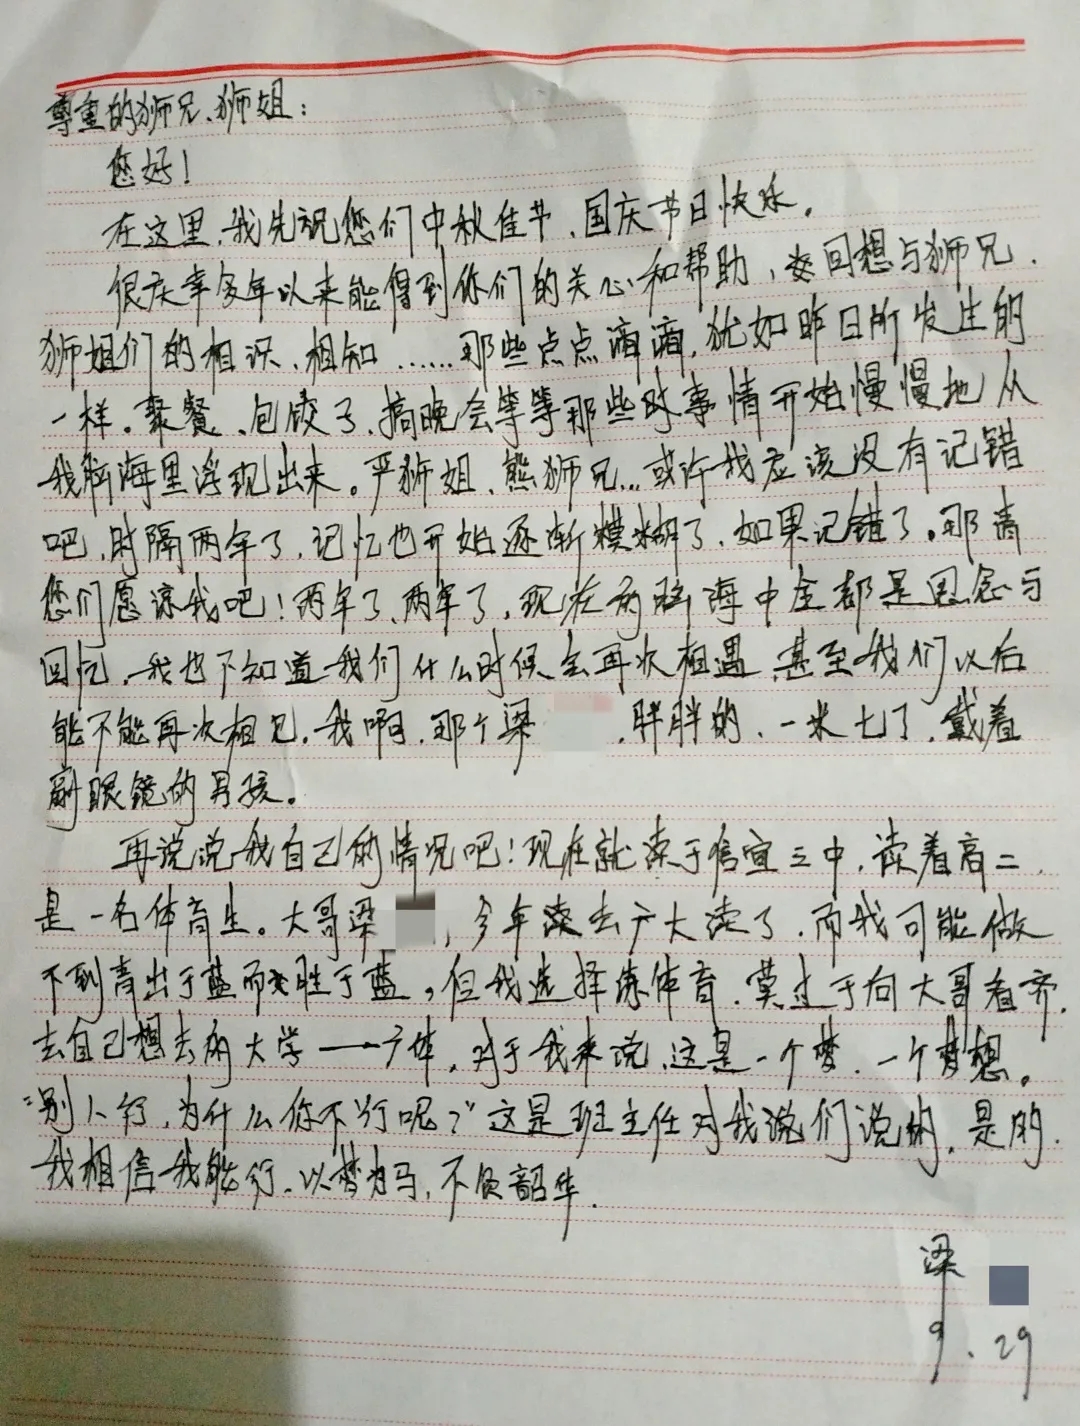 尊重的狮兄、狮姐：
您好！
在这里，我先祝您们中秋佳节、国庆节日快乐。
很庆幸多年以来能得到你们的关心和帮助，回想与狮兄、
狮姐们的相识、相知……那些点点滴滴，犹如昨日所发生的
一样。聚餐、包饺子、搞晚会等等那些时事情开始慢慢地从
我脑海里浮现出来。严狮姐、熊狮兄…或许我应该没有记错
吧，时隔两年了，记忆也开始逐渐模糊了，如果记错了。那请
您们愿谅我吧！两年了、两年了，现在的脑海中全都是思念与
回忆，我也不知道我们什么时候会再次相遇，甚至我们以后
能不能再次相见。我啊，那个梁，胖胖的、一米七了，戴着
副眼镜的男孩。
再说说我自己的情况吧！现在就读于信宜三中，读着高二，
是一名体育生。大哥梁，今年读去广大读了，而我可能做
不到青出于蓝而胜于蓝，但我选择练体育，莫过于向大哥看齐，
去自己想去的大学——广体，对于我来说，这是一个梦，一个梦想。
“别人行，为什么你不行呢？”这是班主任对我说们说的，是的，
我相信我能行，以梦为马，不负韶华。
梁
9.29